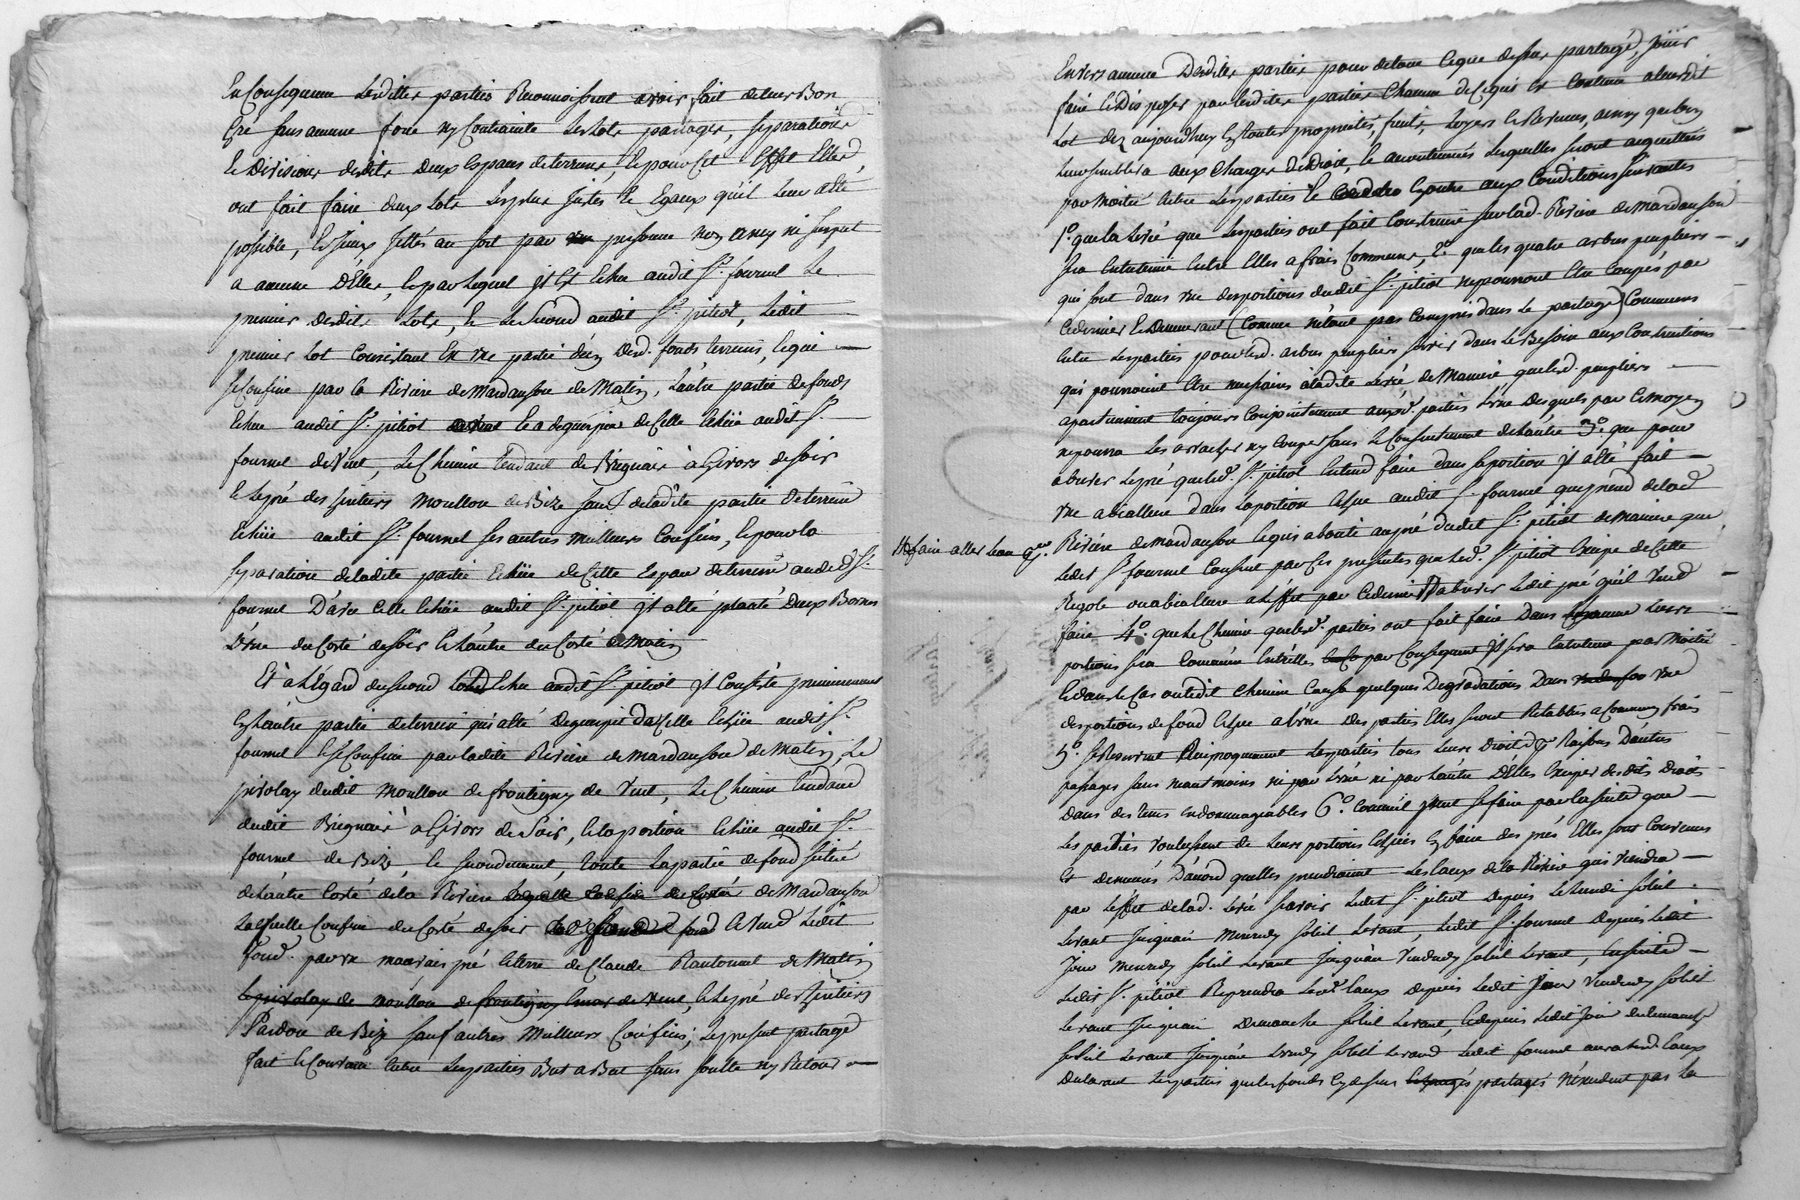 En Consequence lesdittes parties Reconnoissent avoir fait de leur Bon
Gré sans aucune force ny Contrainte les lots partages, separations
Et Divisions desdits deux Espaces de terrains, Et pour Cet Effet Elles
ont fait faire deux lots les plus Justes Et Egaux qu'il leur a été
possible, Et Iceux Jettés au sort par personne non amy ni suspect
a aucune d'Elles, Et par lequel il Est Echu audit Sr. fournel le
premier desdits lots, Et le Second audit Sr. pitiot, ledit
premier lot Consistant En une partie desd. fonds terrains, lequel
se Confine par la Riviere de Mardanson de Matin, l'autre partie de fonds
Echue audit Sr. pitiot Et a deguerpir de Celle Echüe audit Sr.
fournel de Vent, le Chemin Tendant de Brignais à Givors de soir
Et le pré des heritiers Moullon de Bize sauf de ladite partie de terrein
Echüe audit Sr. fournel ses autres meilleurs Confins, Et pour la
separation de ladite partie Echüe de Cette Espace de terrein audit Sr.
fournel D'avec Celle Echüe audit Sr. pitiot il a été planté deux Bornes
L'une du Coté de soir Et l'autre du Coté de Matin
Et à l'Egard du second lot Echu audit Sr. pitiot il Consiste premierement
En l'autre partie de terrein qui a été deguerpie de Celle Echüe audit Sr.
fournel Et se Confine par ladite Riviere de Mardanson de Matin, le
dudit Moullon de frontigny de Vent, le Chemin Tendant
dudit Brignais à Givors de Soir, Et la portion Echüe audit Sr.
fournel de Bize, Et secondement, toute la partie de fond située
de l'autre Coté de la Riviere de Mardanson
laquelle Confine du Coté de soir
fond par un mauvais pré Et terre de Claude de Matin
Et le pré des heritiers
Pardon de Bize sauf autres Meilleurs Confins; le present partage
fait Et Convenu Entre les parties But a But sans soulte ny Retour
Envers aucune Desdites parties pour de tout Ce que dessus partagé, Jouir
faire Et Disposer par lesdites parties Chacune de Ce qui Est Contenu a leurdit
lot dez aujourdhuy En toutes proprietés, fruits, loyers Et Revenus, ainsy que bon
leur semblera aux Charges de droit, lesquelles seront acquittées
par Moitié Entre les parties Et En outre aux Conditions suivantes
1o. que la levée que les parties ont fait Construire sur lad. Riviere de Mardanson
sera Entretenue Entre Elles a frais Communs, 2o. que les quatre arbres peupliers
qui sont dans une des portions dudit Sr. pitiot ne pourront Etre Coupés par
Ce dernier Et Demeurant (Comme n'étant pas Compris dans le partage) Communs
Entre les parties pour lesd. arbres peupliers servir dans le Besoin aux Constructions
qui pourroient Etre necessaires à ladite levée de Maniere que lesd. peupliers
apartiennent toujours Conjointement auxd. parties L'une desquels par Ce moyen
ne pourra les arracher ny Couper sans le Consentement de l'autre 3o. que pour
abreuver le pré que led. Sr. pitiot Entend faire dans sa portion il a été fait
une abeallure dans la portion Echue audit Sr. fournel qui prend de lad.
Riviere de Mardanson Et qui aboutit au pré dudit Sr. pitiot de maniere que
ledit Sr. fournel Consent par Ces presentes que led. Sr. pitiot Excipe de Cette
Rigole ou abeallure a l'Effet par Ce dernier # d'abreuver ledit pré qu'il Veut
# de faire aller l'eau
faire 4o. que le Chemin que lesd. parties ont fait faire Dans leurs
portions sera Commun Entr'elles par Consequent il sera Entretenu par Moitié
Et dans le Cas ou ledit Chemin Causa quelques Degradations Dans une
des portions de fond Echue a l'une des parties Elles seront Rétablies a Communs frais
5o. se Reservent Reciproquement les parties tous leurs Droits Raisons D'autres
passages sans neantmoins ni par l'une ni par l'autre D'Elles Exciper desdits Droits
Dans des tems Endommageables 6o. Comme il peut se faire par la suite que
les parties Voulussent de leurs portions Echües En faire des prés Elles sont Convenues
Et demeurés D'acord quelles prendroient les Eaux de la Riviere qui Viendra
par l'Effet de lad. levée sçavoir ledit Sr. pitiot depuis le Lundi Soleil
levant Jusquau Mercredy Soleil levant, ledit Sr. fournel depuis ledit
Jour Mercredy Soleil levant Jusquau Vendredy Soleil levant, Ensuite
ledit Sr. pitiot Reprendra lesd. Eaux depuis ledit Jour Vendredy Soleil
levant Jusquau Dimanche Soleil levant, Et depuis ledit Jour dimanche
Soleil levant Jusquau Lundy Soleil levant ledit fournel aura lesd. Eaux
Declarant les parties que les fonds Cy dessus partagés n'excedent pas la